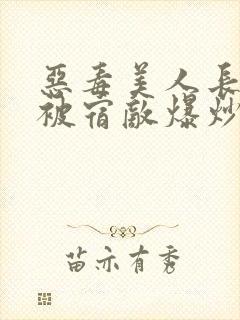 惡毒美人長
被宿敵爆炒
苗亦有秀